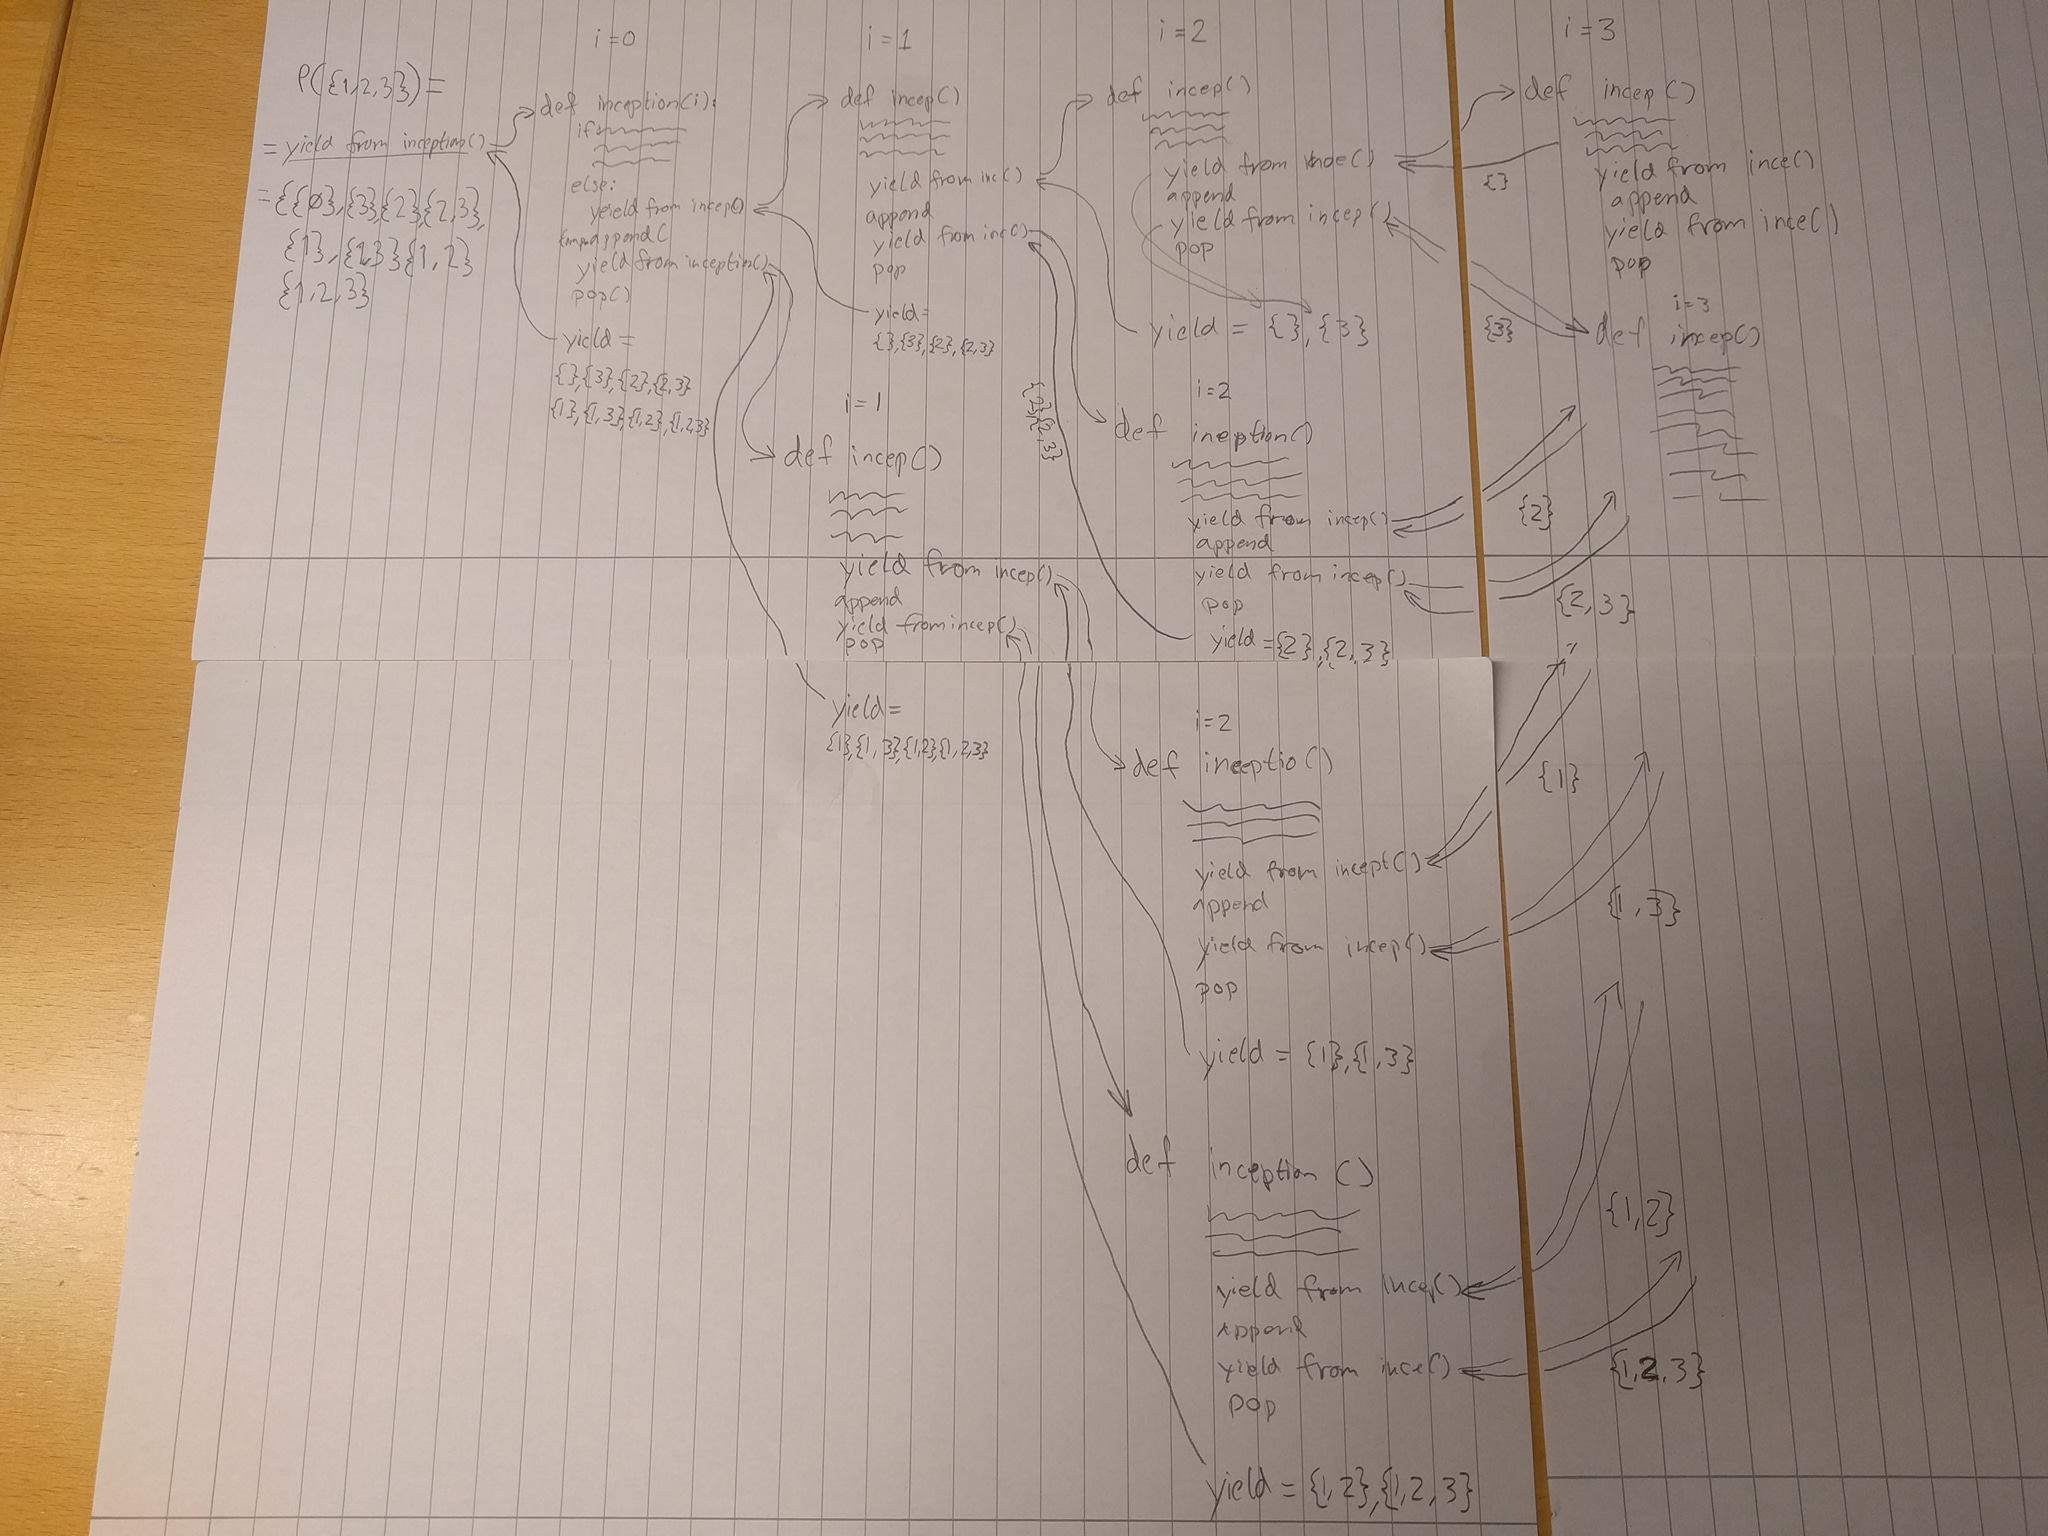 P({1,2,3}) =
= yield from inception()
= {{ø},{3}{2},{2,3},
{1},{1,3}{1,2}
{1,2,3}
i=0
def inception(i):
if
else:
yeield from incep()
append(
yield from inception()
pop()
yield =
{},{3},{2},{2,3}
{1},{1,3},{1,2},{1,2,3}
i=1
def incep()
yield from inc()
append
yield from inc()
pop
yield=
{},{3},{2},{2,3}
i=1
def incep()
yield from incep()
append
yield from incep()
pop
yield=
{1},{1,3},{1,2},{1,2,3}
i=2
def incep()
yield from
append
yield from incep()
pop
yield = {},{3}
{2},{2,3}
i=2
def ineption()
yield from incep()
append
yield from incep()
pop
yield={2},{2,3}
i=2
def inceptio()
yield from incept()
append
yield from incep()
pop
yield = {1},{1,3}
def inception ()
yield from incep()
Append
yield from ince()
pop
yield = {1,2},{1,2,3}
i=3
def incep()
yield from ince()
append
yield from ince()
pop
{}
{3}
i=3
def incep()
{2}
{2,3}
{1}
{1,3}
{1,2}
{1,2,3}